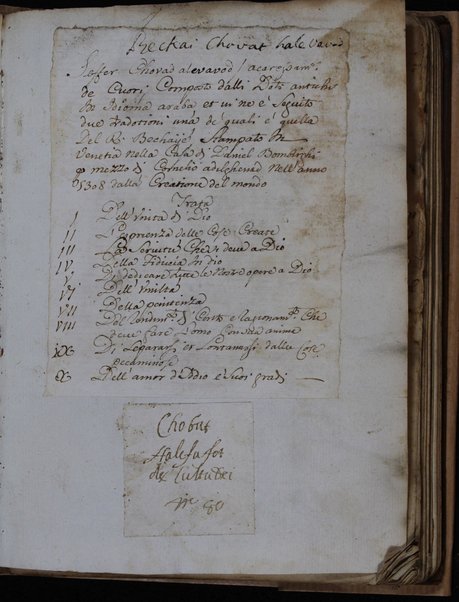 Preckai Chovat hale vavod
Seffer Chovad alevavod
de Cuori Composto dalli Dotti antichi
in Idioma araba et in ne è Seguito
due tradotioni una de quali è quella
Del R. Bechaije Stampato in
Venetia nella Casa di Daniel Bomberghi
mezzo di Cornelio adelchenad nell'anno
5308 dalla Creatione del mondo
Trata
I Dell'Unita di Dio
II Sapienza delle Cose Create
III Servitù Che si deve a Dio
IV Della Fiducia in Dio
V dedicare tutte le nostre opere a Dio
VI Dell'Umiltà
VII Della penitenza
VIII Del Conto e ragionam. Che
deve fare l'omo Con sua anima
IX Di Separarsi et Lontanarsi dalle Cose
X Dell'amor d'Iddio e Suoi gradi
Chobut
Halefafot
de
n. 80